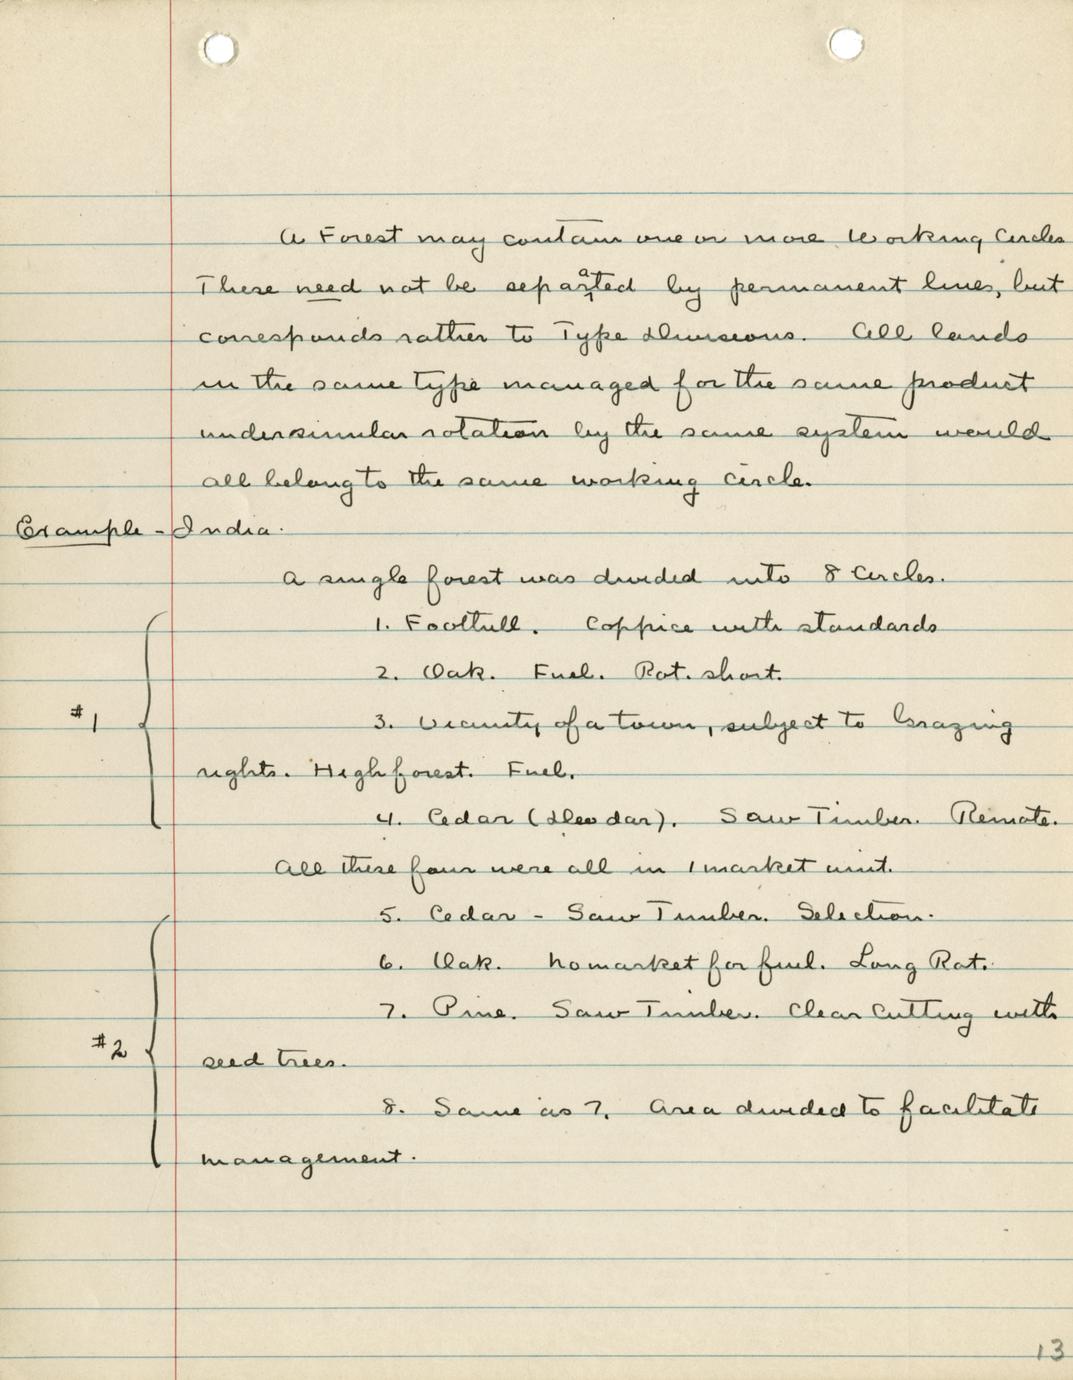 A Forest may contain one or more Working Circles
These need not be separated by permanent lines, but
corresponds rather to Type Divisions. All lands
in the same type managed for the same product
under similar rotation by the same system would
all belong to the same working circle.
Example - India.
A single forest was divided into 8 Circles.
1. Foothill. Coppice with standards
2. Oak. Fuel. Rot. short.
#1
3. Vicinity of a town, subject to Grazing
rights. High forest. Fuel.
4. Cedar (Deodar). Saw Timber. Remote.
All these four were all in 1 market unit.
5. Cedar - Saw Timber. Selection.
6. Oak. No market for fuel. Long Rot.
7. Pine. Saw Timber. Clear Cutting with
#2
seed trees.
8. Same as 7. Area divided to facilitate
management.
13